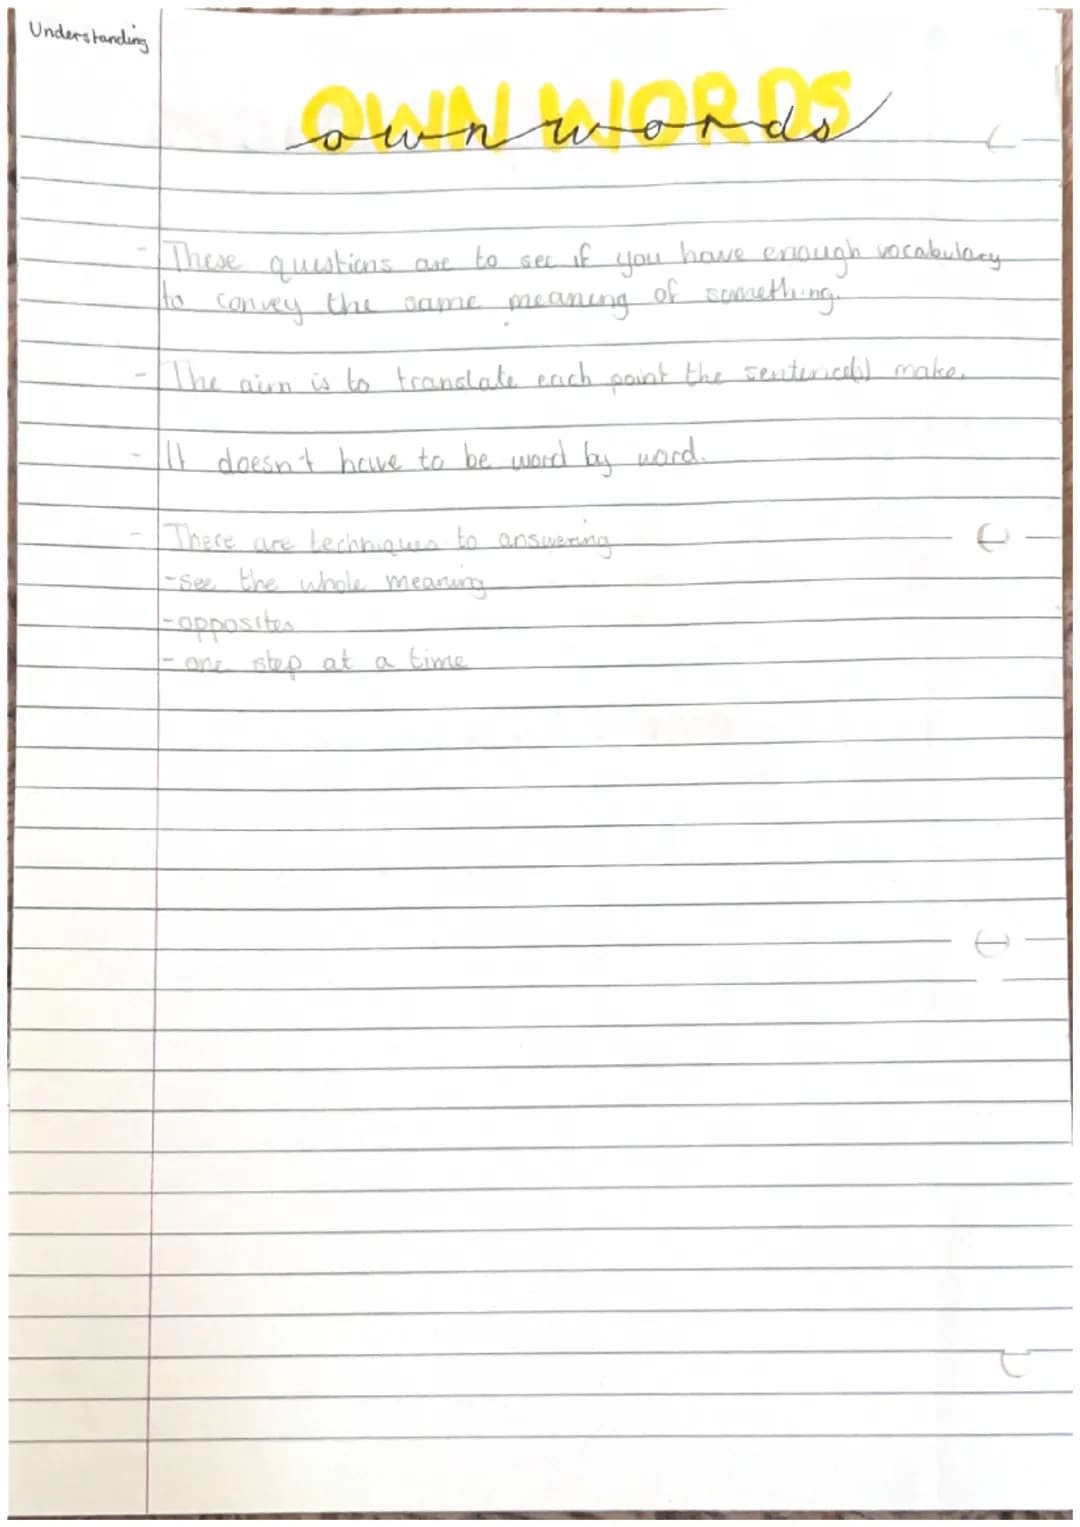 Understanding
OWN WORDS
own words
- These questions are to see if you have enough vocabulary
to convey the same meaning of something.
- The aim is to translate each point the sentence(s) make.
- It doesn't have to be word by word.
- There are techniques to answering
- see the whole meaning
- opposites
- one step at a time